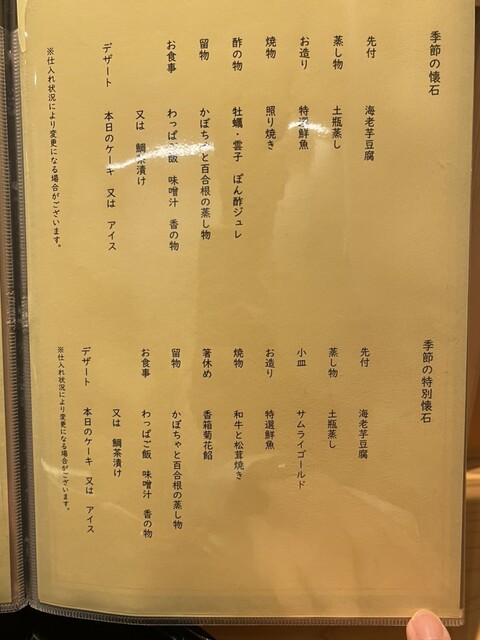 季節の懐石
先付　海老芋豆腐
蒸し物　土瓶蒸し
お造り　特選鮮魚
焼物　照り焼き
酢の物　牡蠣・雲子　ぽん酢ジュレ
留物　かぼちゃと百合根の蒸し物
お食事　わっぱご飯　味噌汁　香の物
又は　鯛茶漬け
デザート　本日のケーキ　又は　アイス
※仕入れ状況により変更になる場合がございます。
季節の特別懐石
先付　海老芋豆腐
蒸し物　土瓶蒸し
小皿　サムライゴールド
お造り　特選鮮魚
焼物　和牛と松茸焼き
箸休め　香箱菊花餡
留物　かぼちゃと百合根の蒸し物
お食事　わっぱご飯　味噌汁　香の物
又は　鯛茶漬け
デザート　本日のケーキ　又は　アイス
※仕入れ状況により変更になる場合がございます。